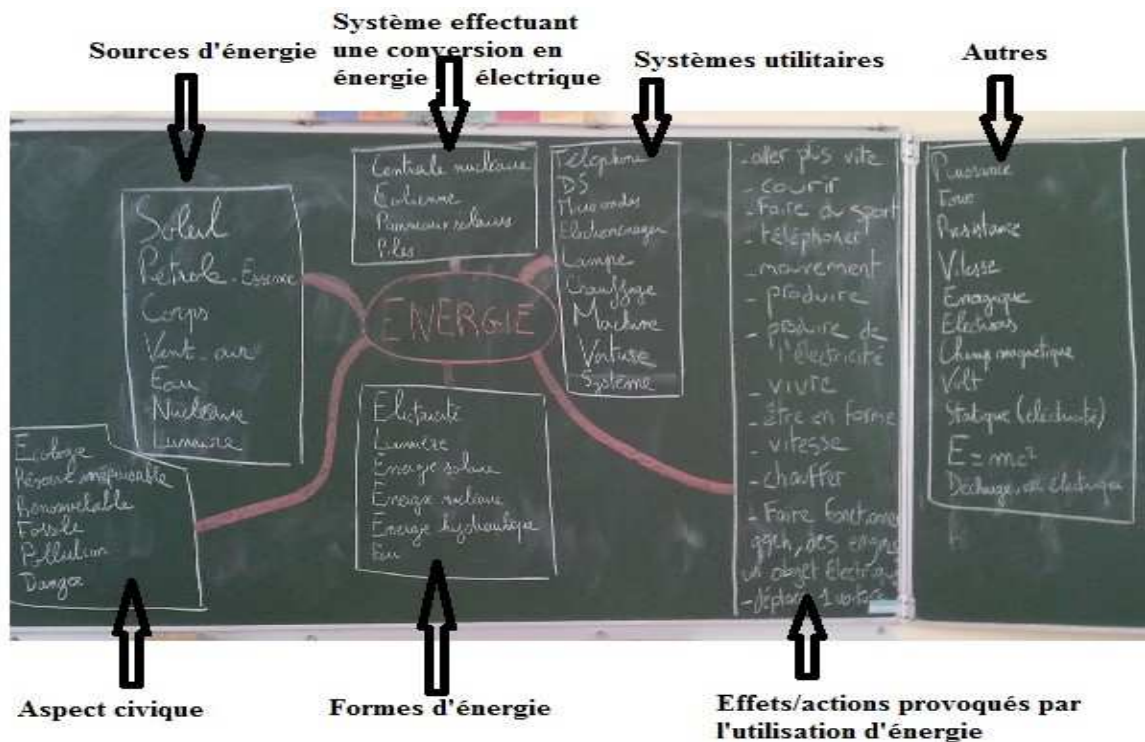 Sources d'énergie
Système effectuant
une conversion en
énergie électrique
Systèmes utilitaires
Autres
Soleil
Pétrole - Essence
Corps
Vent - air
Eau
Nucléaire
Lumière
Centrale nucléaire
Eolienne
Panneaux solaires
Piles
ENERGIE
Téléphone
DS
Micro ondes
Electroménager
Lampe
Chauffage
Machine
Voiture
Système
- aller plus vite
- courir
- Faire du sport
- téléphoner
- mouvement
- produire
- produire de
l'électricité
- vivre
- être en forme
- vitesse
- chauffer
- Faire fonctionner
des engins
un objet électrique
- déplacer 1 voiture
Puissance
Force
Résistance
Vitesse
Energique
Electrons
Champ magnétique
Volt
Statique (électricité)
E = mc²
Decharge électrique
Ecologie
Réserve inépuisable
Renouvelable
Fossile
Pollution
Danger
Electricité
Lumière
Energie solaire
Energie nucléaire
Energie hydraulique
Eau
Aspect civique
Formes d'énergie
Effets/actions provoqués par
l'utilisation d'énergie